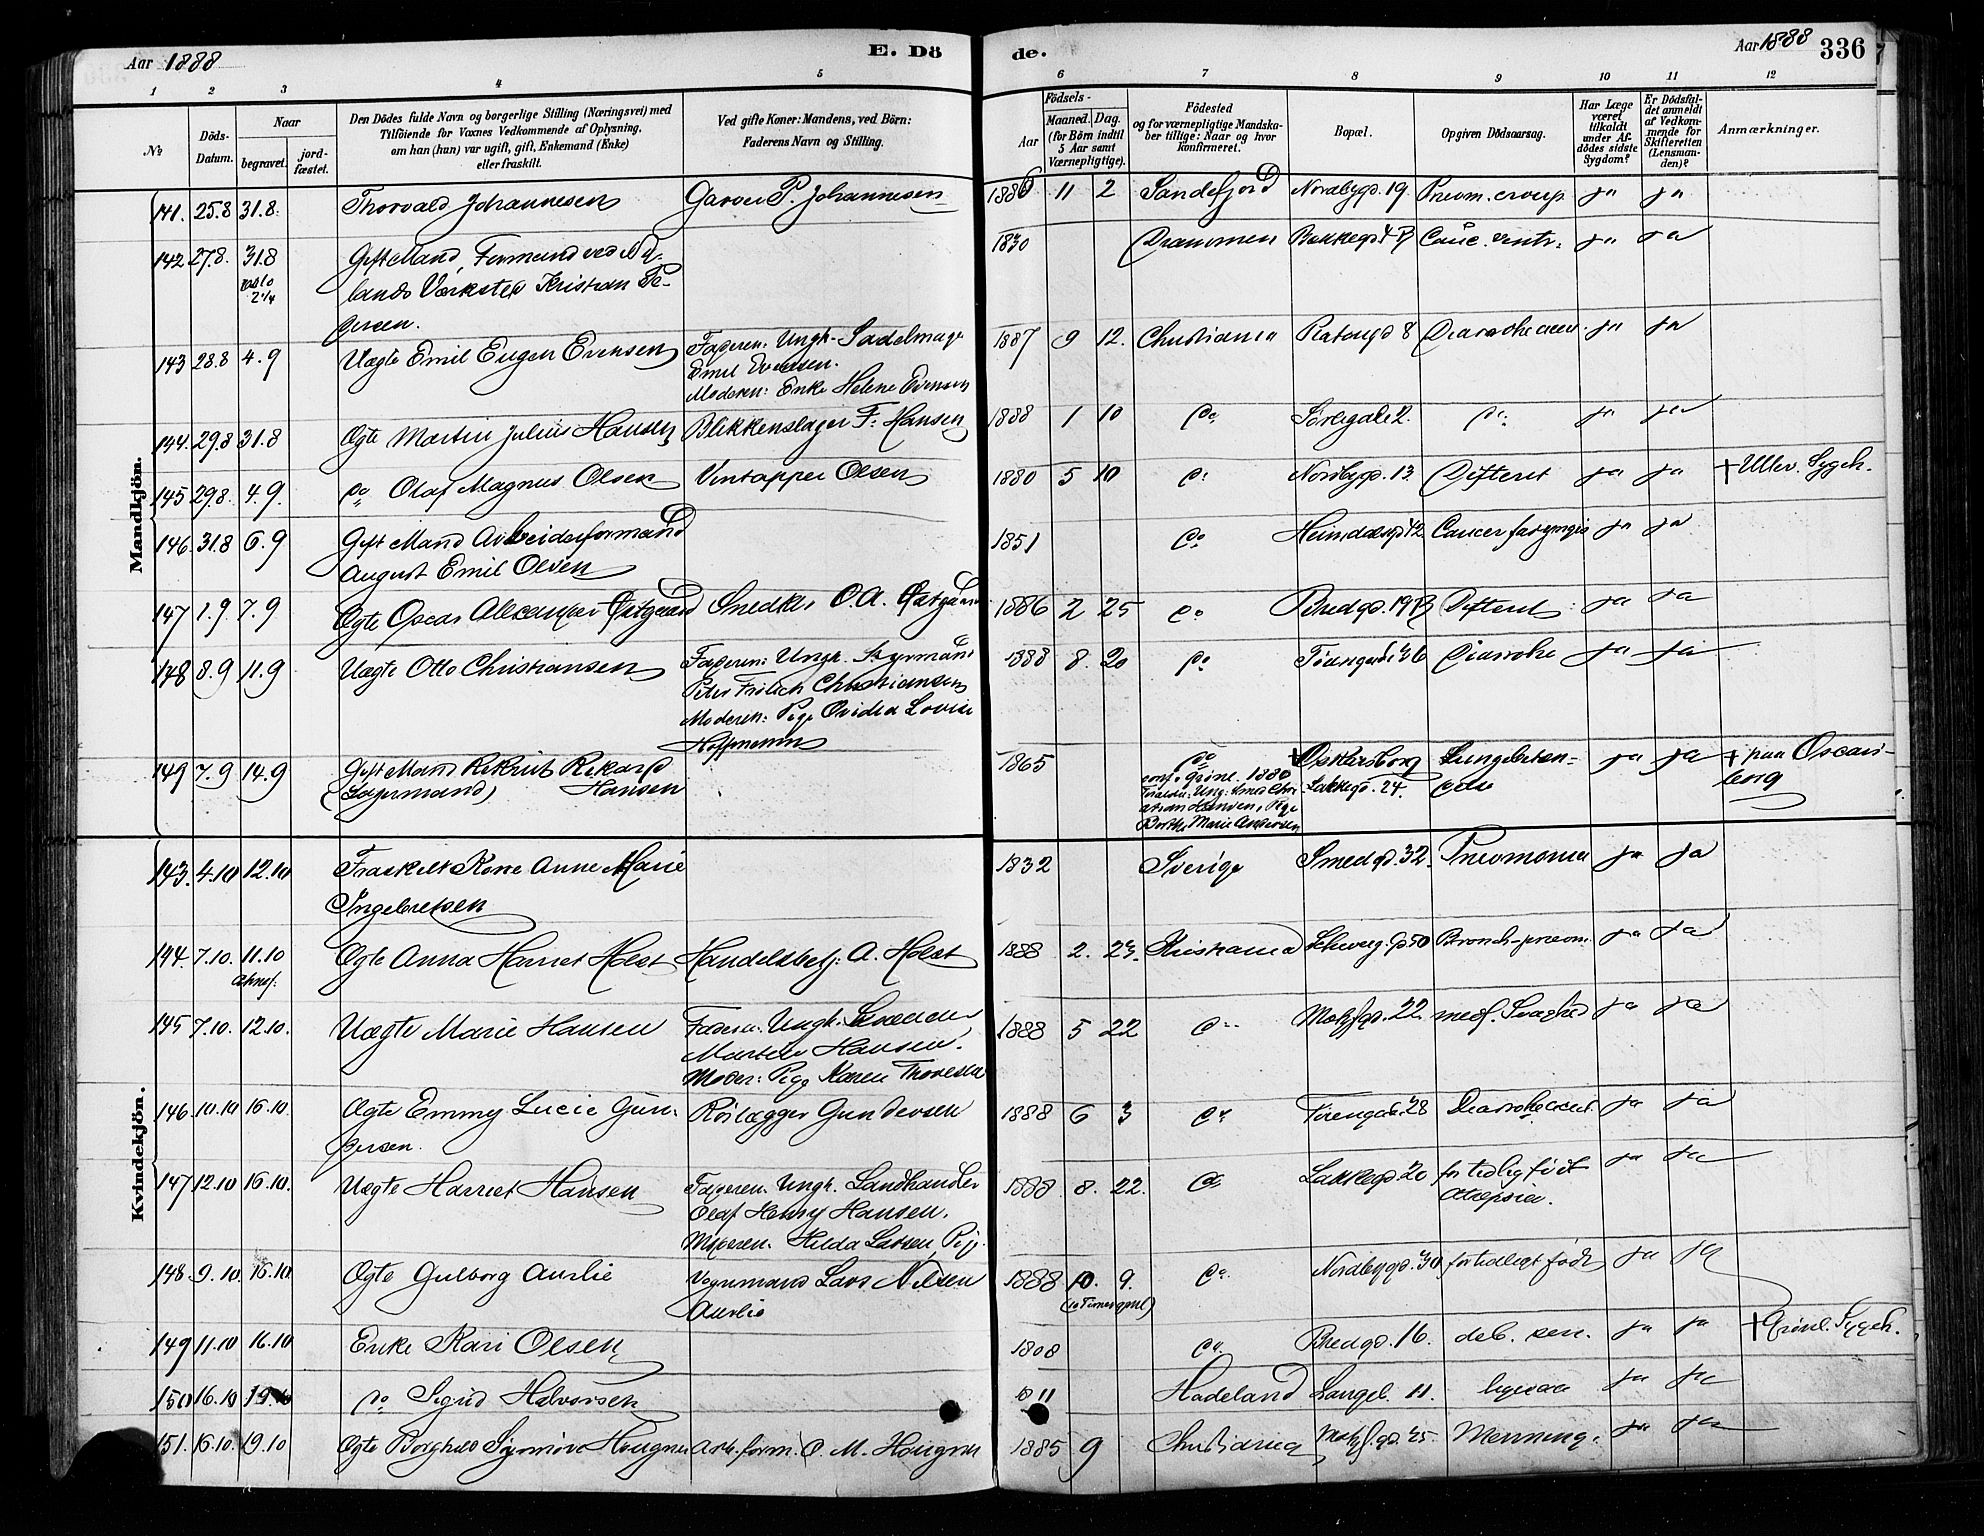 Aar 1888 E. Dö
de. Aar 1888 336
1 2 3 4 5
6 7 8 9 10 11 12
No.
Döds-Datum.
Naar
begravet.
jord-fæstet.
Den Dödes fulde Navn og borgerlige Stilling (Næringsvei) med
Tilföiende for Voxnes Vedkommende af Oplysning,
om han (hun) var ugift, gift, Enkemand (Enke)
eller fraskilt.
Ved gifte Koner: Mandens, ved Börn:
Faderens Navn og Stilling.
Födsels-
Aar
Maaned. Dag.
(for Börn indtil
5 Aar samt
Værnepligtige).
Födested
og for værnepligtige Mandska-
ber tillige: Naar og hvor
konfirmeret.
Bopæl.
Opgiven Dödsaarsag.
Har Læge
været
tilkaldt
under Af-
dödes sidste
Sygdom?
Er Dödsfal-
det anmeldt
af Vedkom-
mende for
Skifteretten
(Lensman-
den)?
Anmærkninger.
Mandkjön.
141. 25.8 31.8. Thorvald Johannesen Garver P. Johannesen 1886 11 2 Sandefjord Nordbygd. 19 Pneum. croup. ja ja
142 27.8. 31.8 Gift Mand, Formand ved Ny- 1830 Drammen Bakkegd 4 B Canc. ventr. ja ja
lands Værksted Kristian Pe-
dersen.
143 28.8 4.9 Uægte Emil Eugen Evensen Faderen: Ungk. Sadelmager 1887 9 12. Christiania 8 Diarrhe acut. ja ja
Emil Evensen.
Moderen: Enke Helene Evensen
144. 29.8 31.8 Ægte Martin Julius Hansen Blikkenslager F. Hansen 1888 1 10 do. Sörligade 2. do. ja ja
145 29.8. 4.9. do Olaf Magnus Olsen Vintapper Olsen 1880 5 10 do Nordbygd. 13 Difterit ja ja † Ullev. Sygeh.
146. 31.8 6.9 Gift Mand Arbeidsformand 1851 do Heimdalsgd 42 Cancer faryngis ja ja
August Emil Olsen
147 1.9. 7.9 Ægte Oscar Alexander Östgaard Snedker O.A. Östgaard 1886 2 25 do Bredgd. 19 B Difterit ja ja
148 8.9 11.9 Uægte Otto Christiansen Faderen: Ungk. Styrmand 1888 8. 20 do Töiengade 36 Diarrohe ja ja
Peter Frölich Christiansen
Moderen: Pige Ovidia Lovise
Hoffmann
149 7.9 14.9 Gift Mand Rekrut Rikard 1865 do Oskarsborg Lungebeten- ja ja † paa Oscars-
(Lagermand) Hansen conf. Grönl. 1880 Lakkegd. 24. delse borg
Forældre: Ung: Smed Chri-
stian Hansen, Pige
Borthe Marie Andersen
Kvindekjön.
143. 4.10 12.10 Fraskilt Kone Anne Marie 1832 Sverige Smedgd. 32. Pneumonia ja ja
Ingebretsen
144. 7.10. 11.10 Ægte Anna Harriet Holst Handelsbetj. A. Holst 1888 2. 23. Kristiania Schweig. gd 50 Bronch-pneum. ja ja
145 7.10. 12.10. Uægte Marie Hansen Faderen: Ungk. Svender 1888 5 22 do Motzfgd. 22. medf. Svaghed ja ja
Martin Hansen.
Moder: Pige Karen
146. 10.10 16.10. Ægte Emmy Lucie Gun- Rörlægger Gundersen 1888 6 3 do Töiengade 28 Diarrohe acut. ja ja
dersen.
147 12.10 16.10. Uægte Harriet Hansen Faderen. Ungk. Landhandler 1888 8. 22. do Lakkegd. 20 for tidlig födt ja ja
Olaf Henry Hansen. atrepsia.
Moderen. Hilda Larsen, Pige.
148. 9.10. 15.10. Ægte Gulborg Aurlie Vognmand Lars Nilsen 1888 10. 9. do. Nordbygd. 30 for tidligt födt ja ja
Aurlie (10 Timer gml)
149 11.10 16.10 Enke Kari Olsen 1808 do. Bredgd. 16. deb. sen. ja ja † Grönl. Sygeh.
150 16.10 19.10 do Sigrid Halvorsen 1811 Hadeland Langel. 11. ligesaa ja ja
151. 15.10. 19.10 Ægte Borghild Synnöve Haugner Arb. form. O. M. Haugner 1885 9 Christiania Motzf. gd. 25. Mening. ja ja